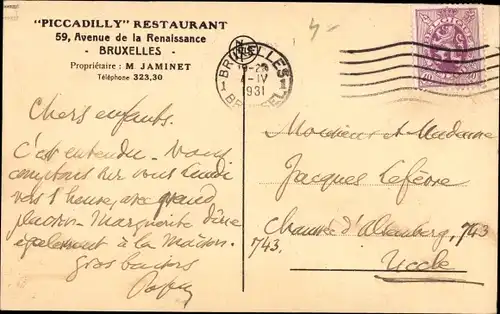 "PICCADILLY" RESTAURANT
59, Avenue de la Renaissance
- BRUXELLES -
Propriétaire : M. JAMINET
Téléphone 323,30
BRUXELLES
1 1
-IV
1931
BRUSSEL
Chers enfants.
C'est entendu. Nous
comptons sur vous lundi
vers 1 heure, avec grand
plaisir. Marguerite dîne
également à la maison.
Gros baisers
Monsieur et Madame
Jacques Lefèvre
Chaussée d'Alsemberg, 743
743.
Uccle